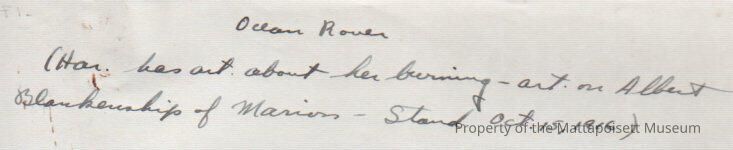 Ocean Rover
(Har. has art. about her burning - art. on Albert
Blankenship of Marion - Stand Oct. 15, 1916)
Property of the Mattapoisett Museum